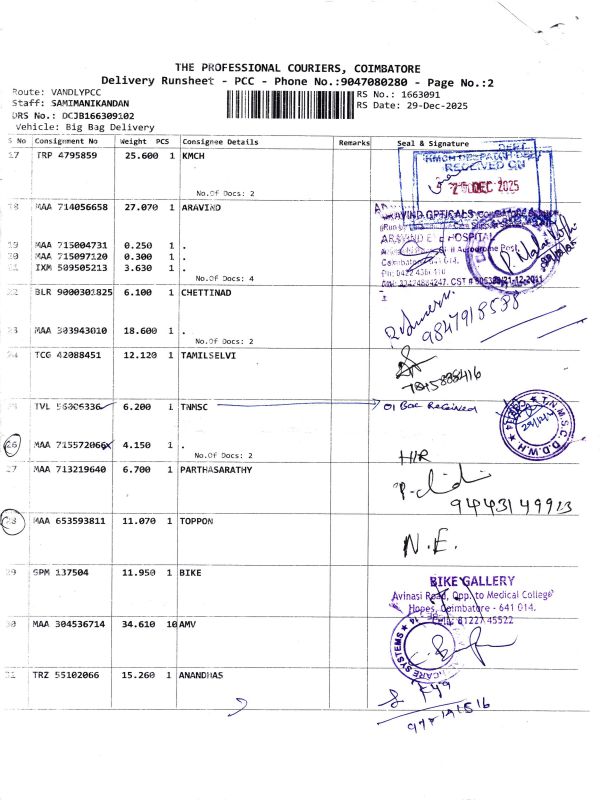 THE PROFESSIONAL COURIERS, COIMBATORE
Delivery Runsheet - PCC - Phone No.:9047080280 - Page No.:2
Route: VANDLYPCC
Staff: SAMIMANIKANDAN
DRS No.: DCJB166309102
Vehicle: Big Bag Delivery
RS No.: 1663091
RS Date: 29-Dec-2025
S No Consignment No Weight PCS Consignee Details Remarks Seal & Signature
17 TRP 4795859 25.600 1 KMCH
No.Of Docs: 2
DEPT
RECEIVED ON
DEC 2025
18 MAA 714056658 27.070 1 ARAVIND
ARAVIND OPTICALS COIMBATORE
HOSPITAL
Aerodrome Post
19 MAA 715004731 0.250 1 .
20 MAA 715097120 0.300 1 .
21 IXM 509505213 3.630 1 .
No.Of Docs: 4
22 BLR 9000301825 6.100 1 CHETTINAD
9847918588
23 MAA 303943010 18.600 1 .
No.Of Docs: 2
24 TCG 42088451 12.120 1 TAMILSELVI
25 TVL 56006336 6.200 1 TNMSC
01 Box Received
T.N.M.S.C.D.D.W.H.
26 MAA 715572066 4.150 1 .
No.Of Docs: 2
H/R
27 MAA 713219640 6.700 1 PARTHASARATHY
9444314 9913
28 MAA 653593811 11.070 1 TOPPON
N.E.
29 SPM 137504 11.950 1 BIKE
BIKE GALLERY
Avinasi Road, Opp. to Medical College
Hopes, Coimbatore - 641 014.
30 MAA 304536714 34.610 10 AMV
CARE SYSTEMS
31 TRZ 55102066 15.260 1 ANANDHAS